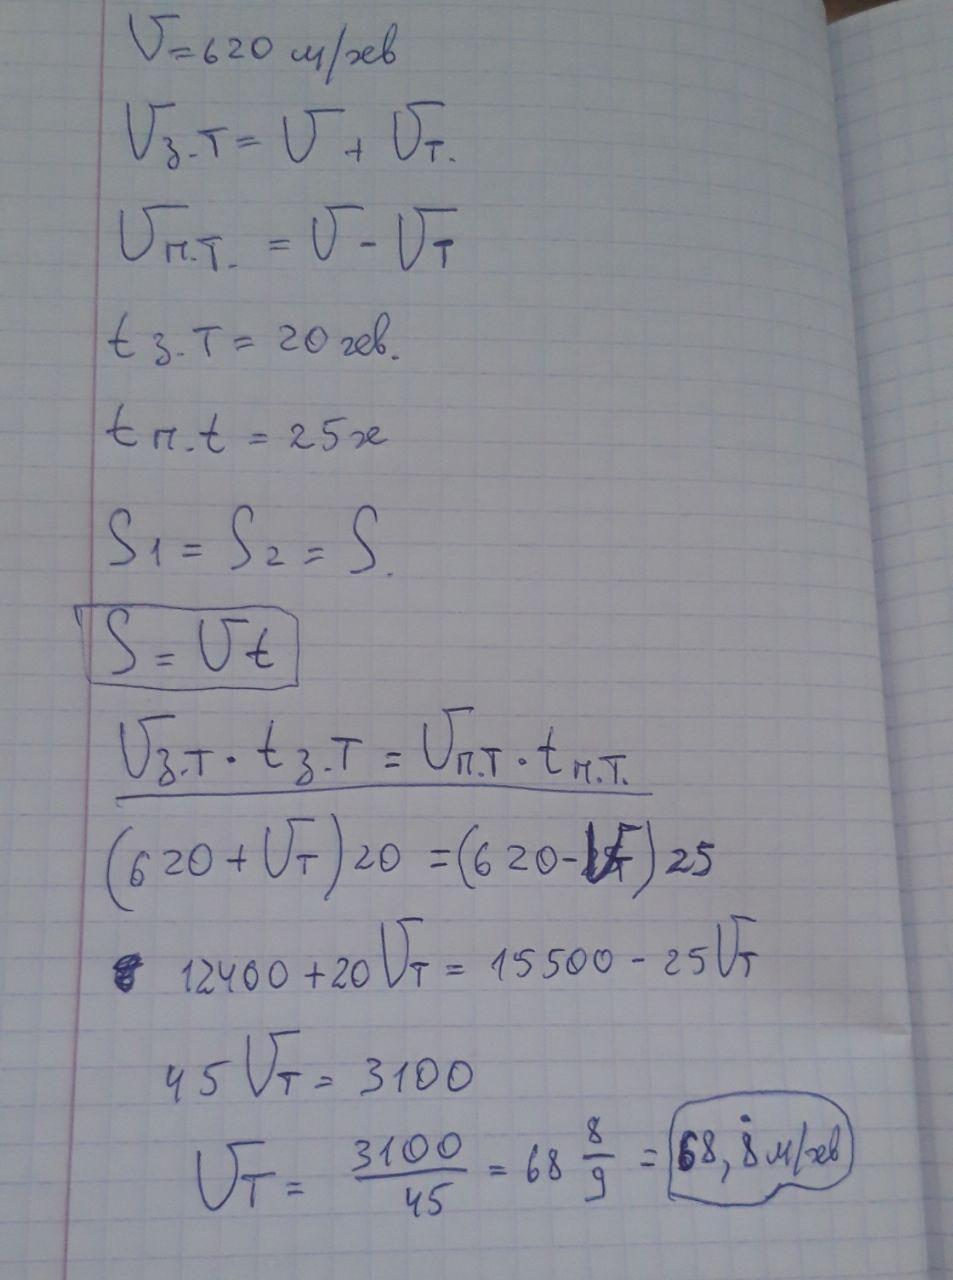 V = 620 м/хв
Vз.т = V + Vт.
Vп.т. = V - Vт
tз.т = 20 хв.
tп.t = 25 х
S1 = S2 = S.
S = Vt
Vз.т · tз.т = Vп.т · tп.т.
(620 + Vт)20 = (620 - Vт)25
12400 + 20Vт = 15500 - 25Vт
45Vт = 3100
Vт = 3100/45 = 68 8/9 = 68,8̇ м/хв